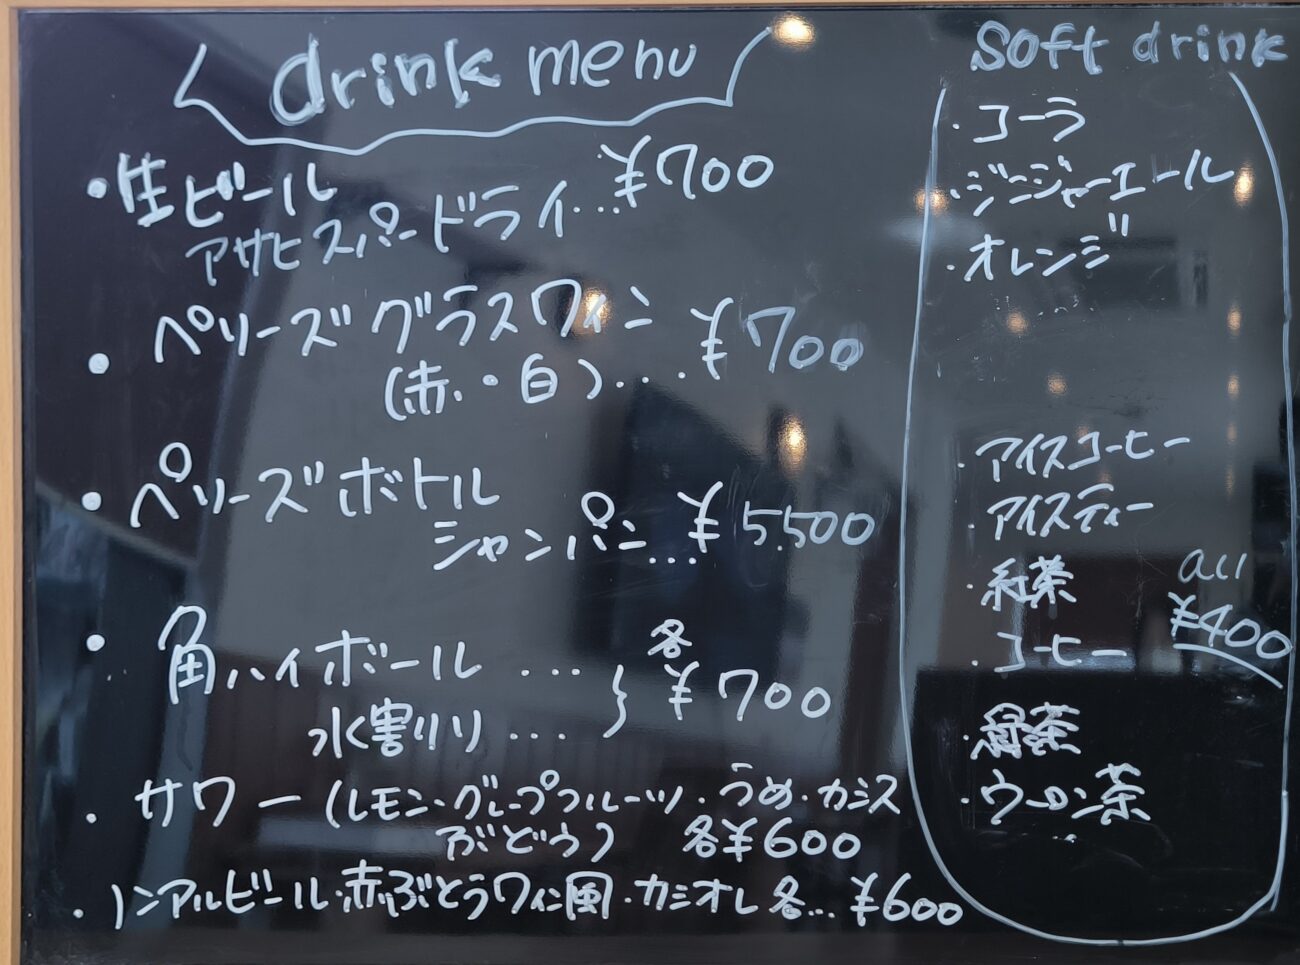 drink menu
・生ビール
アサヒスーパードライ...¥700
・ペリーズグラスワイン
(赤・白)....¥700
・ペリーズボトル
シャンパン...¥5,500
・角ハイボール ...
水割り ...
} 各 ¥700
・サワー(レモン・グレープフルーツ・うめ・カシス
ぶどう) 各¥600
・ノンアルビール・赤ぶどうワイン風・カシオレ 各...¥600
Soft drink
・コーラ
・ジンジャーエール
・オレンジ
・アイスコーヒー
・アイスティー
・紅茶
・コーヒー
all
¥400
・緑茶
・ウーロン茶